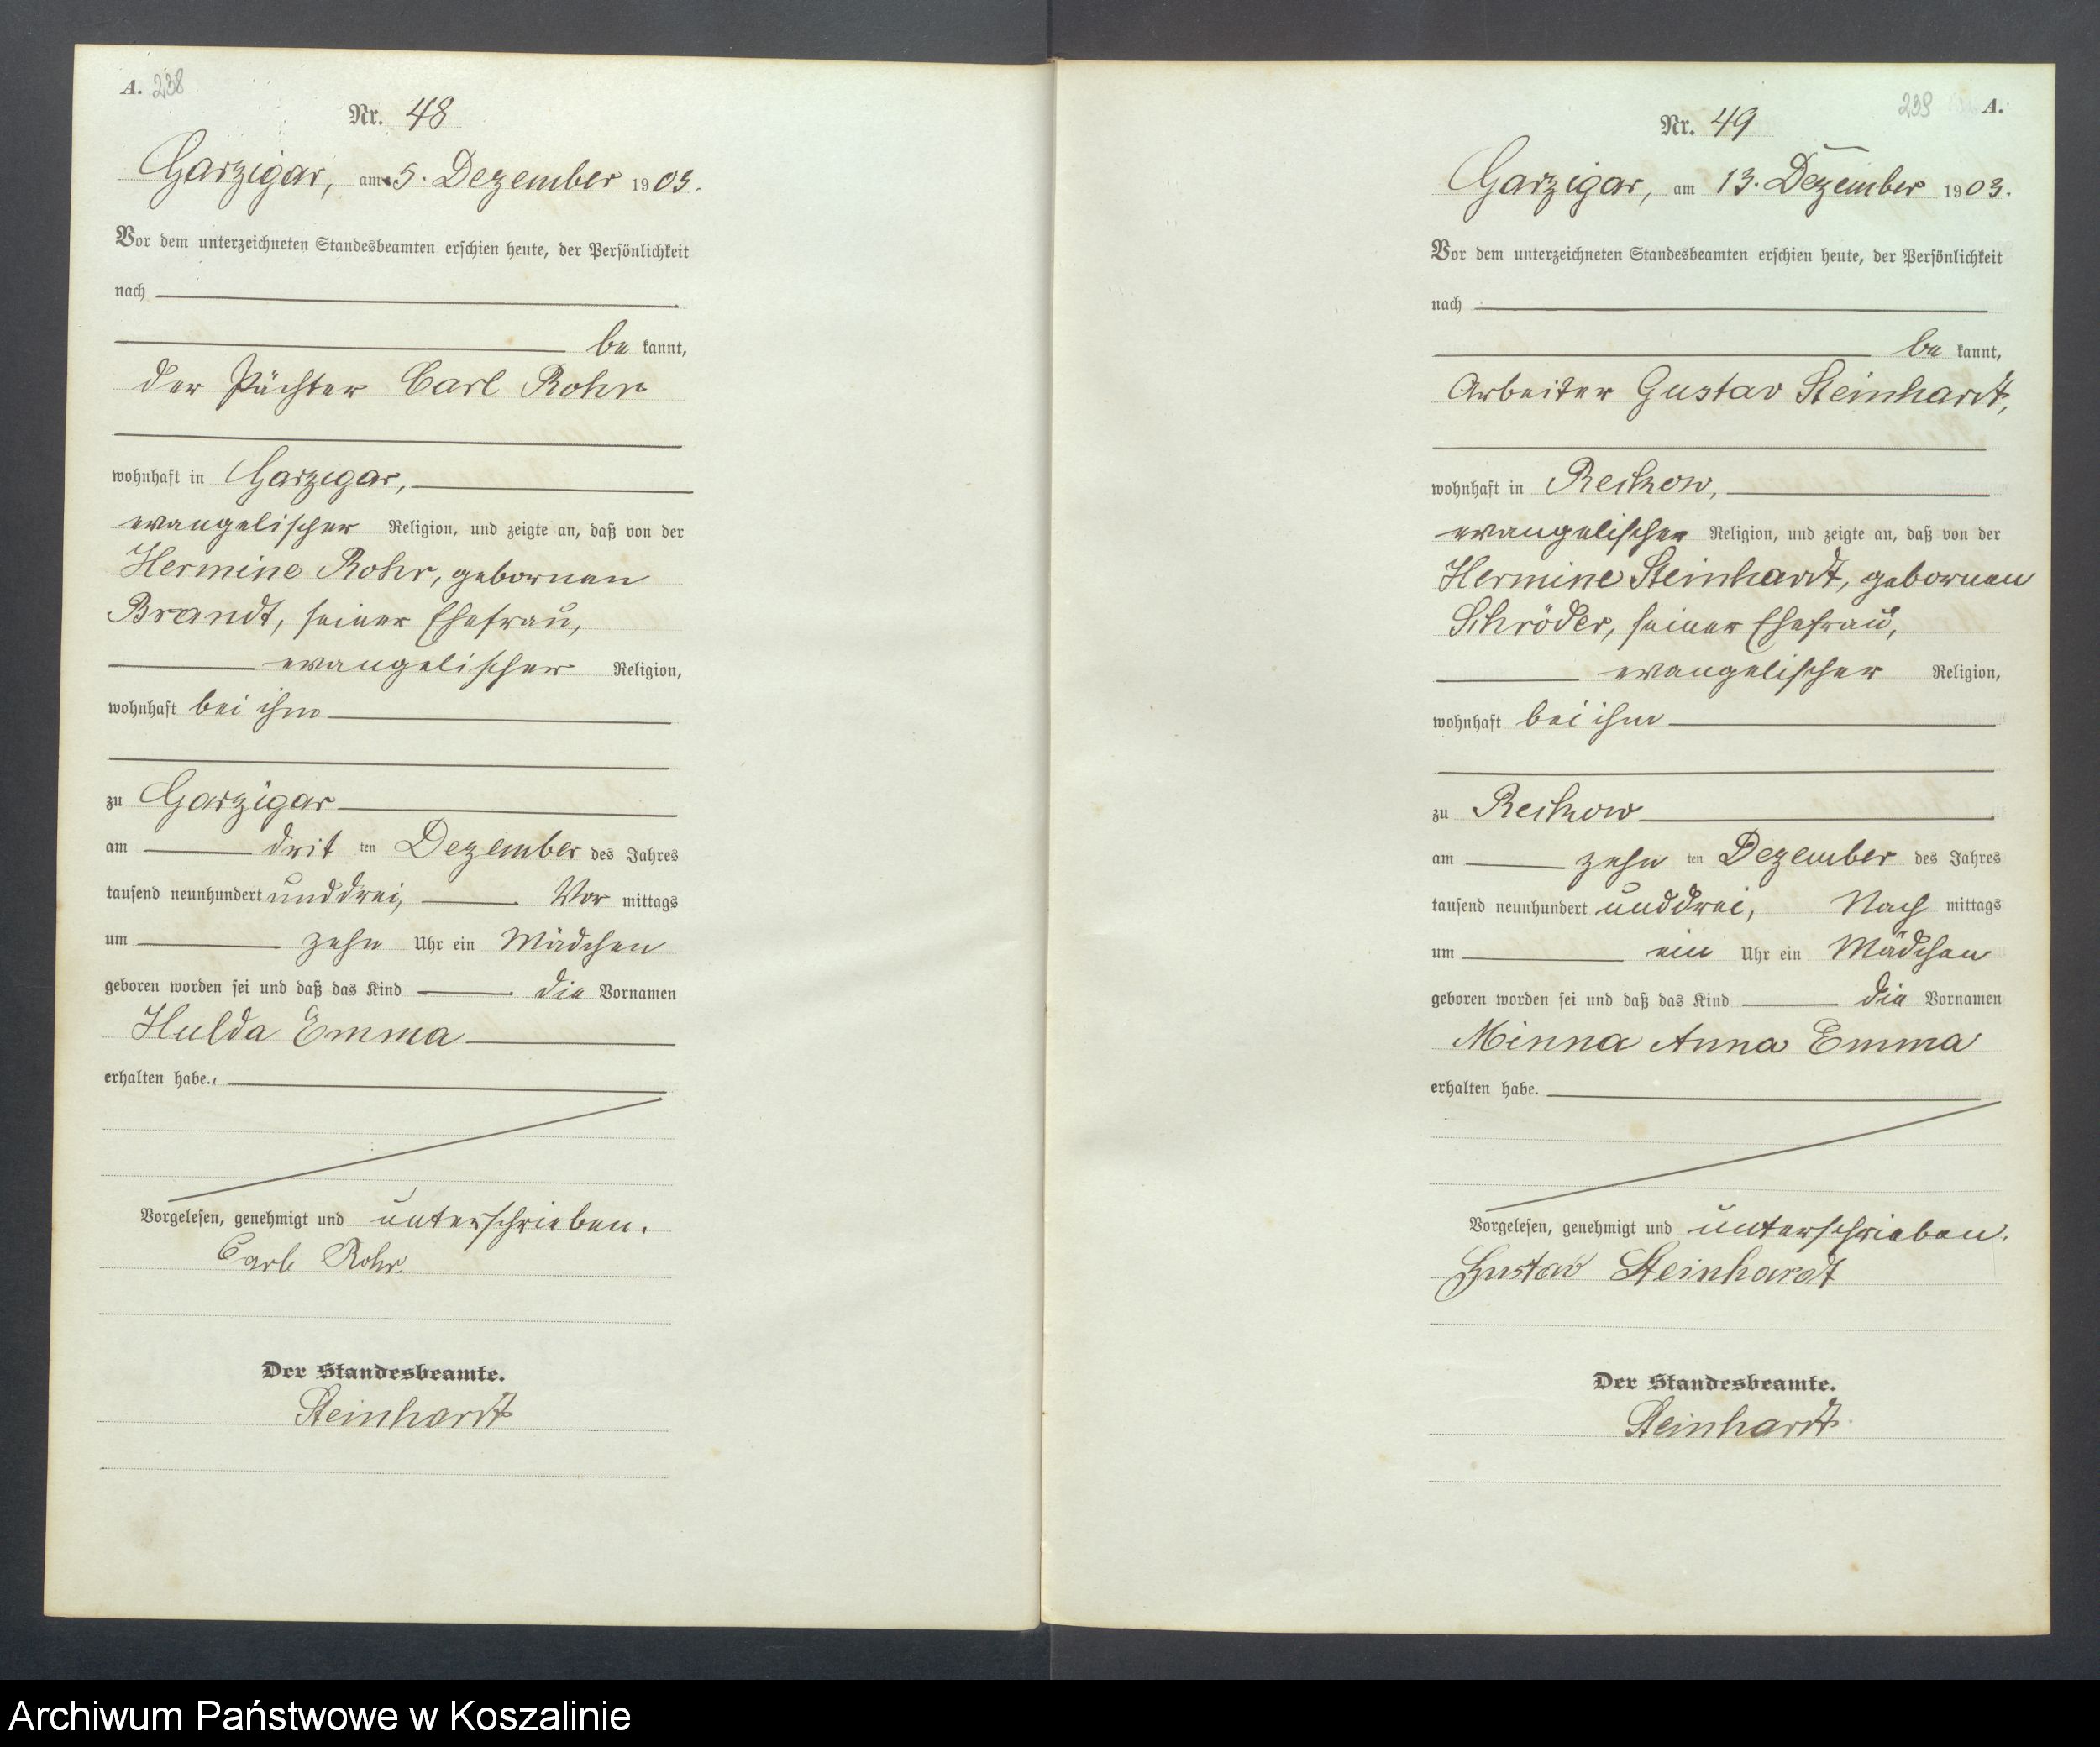 A. 238
Nr. 48
Garzigar, am 5. Dezember 1903.
Vor dem unterzeichneten Standesbeamten erschien heute, der Persönlichkeit
nach
be kannt,
der Pächter Carl Rohr
wohnhaft in Garzigar,
evangelischer Religion, und zeigte an, daß von der
Hermine Rohr, gebornen
Brandt, seiner Ehefrau,
evangelischer Religion,
wohnhaft bei ihm
zu Garzigar
am drit ten Dezember des Jahres
tausend neunhundert unddrei, Vor mittags
um zehn Uhr ein Mädchen
geboren worden sei und daß das Kind die Vornamen
Hulda Emma
erhalten habe.
Vorgelesen, genehmigt und unterschrieben.
Carl Rohr.
Der Standesbeamte.
Steinhardt
239 A.
Nr. 49
Garzigar, am 13. Dezember 1903.
Vor dem unterzeichneten Standesbeamten erschien heute, der Persönlichkeit
nach
be kannt,
Arbeiter Gustav Steinhardt,
wohnhaft in Reckow,
evangelischer Religion, und zeigte an, daß von der
Hermine Steinhardt, gebornen
Schröder, seiner Ehefrau,
evangelischer Religion,
wohnhaft bei ihm
zu Reckow
am zehn ten Dezember des Jahres
tausend neunhundert unddrei, Nach mittags
um ein Uhr ein Mädchen
geboren worden sei und daß das Kind die Vornamen
Minna Anna Emma
erhalten habe.
Vorgelesen, genehmigt und unterschrieben.
Gustav Steinhardt
Der Standesbeamte.
Steinhardt
Archiwum Państwowe w Koszalinie